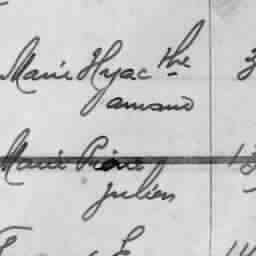 Marie Hyacthe
amand
Marie Pierre
julien